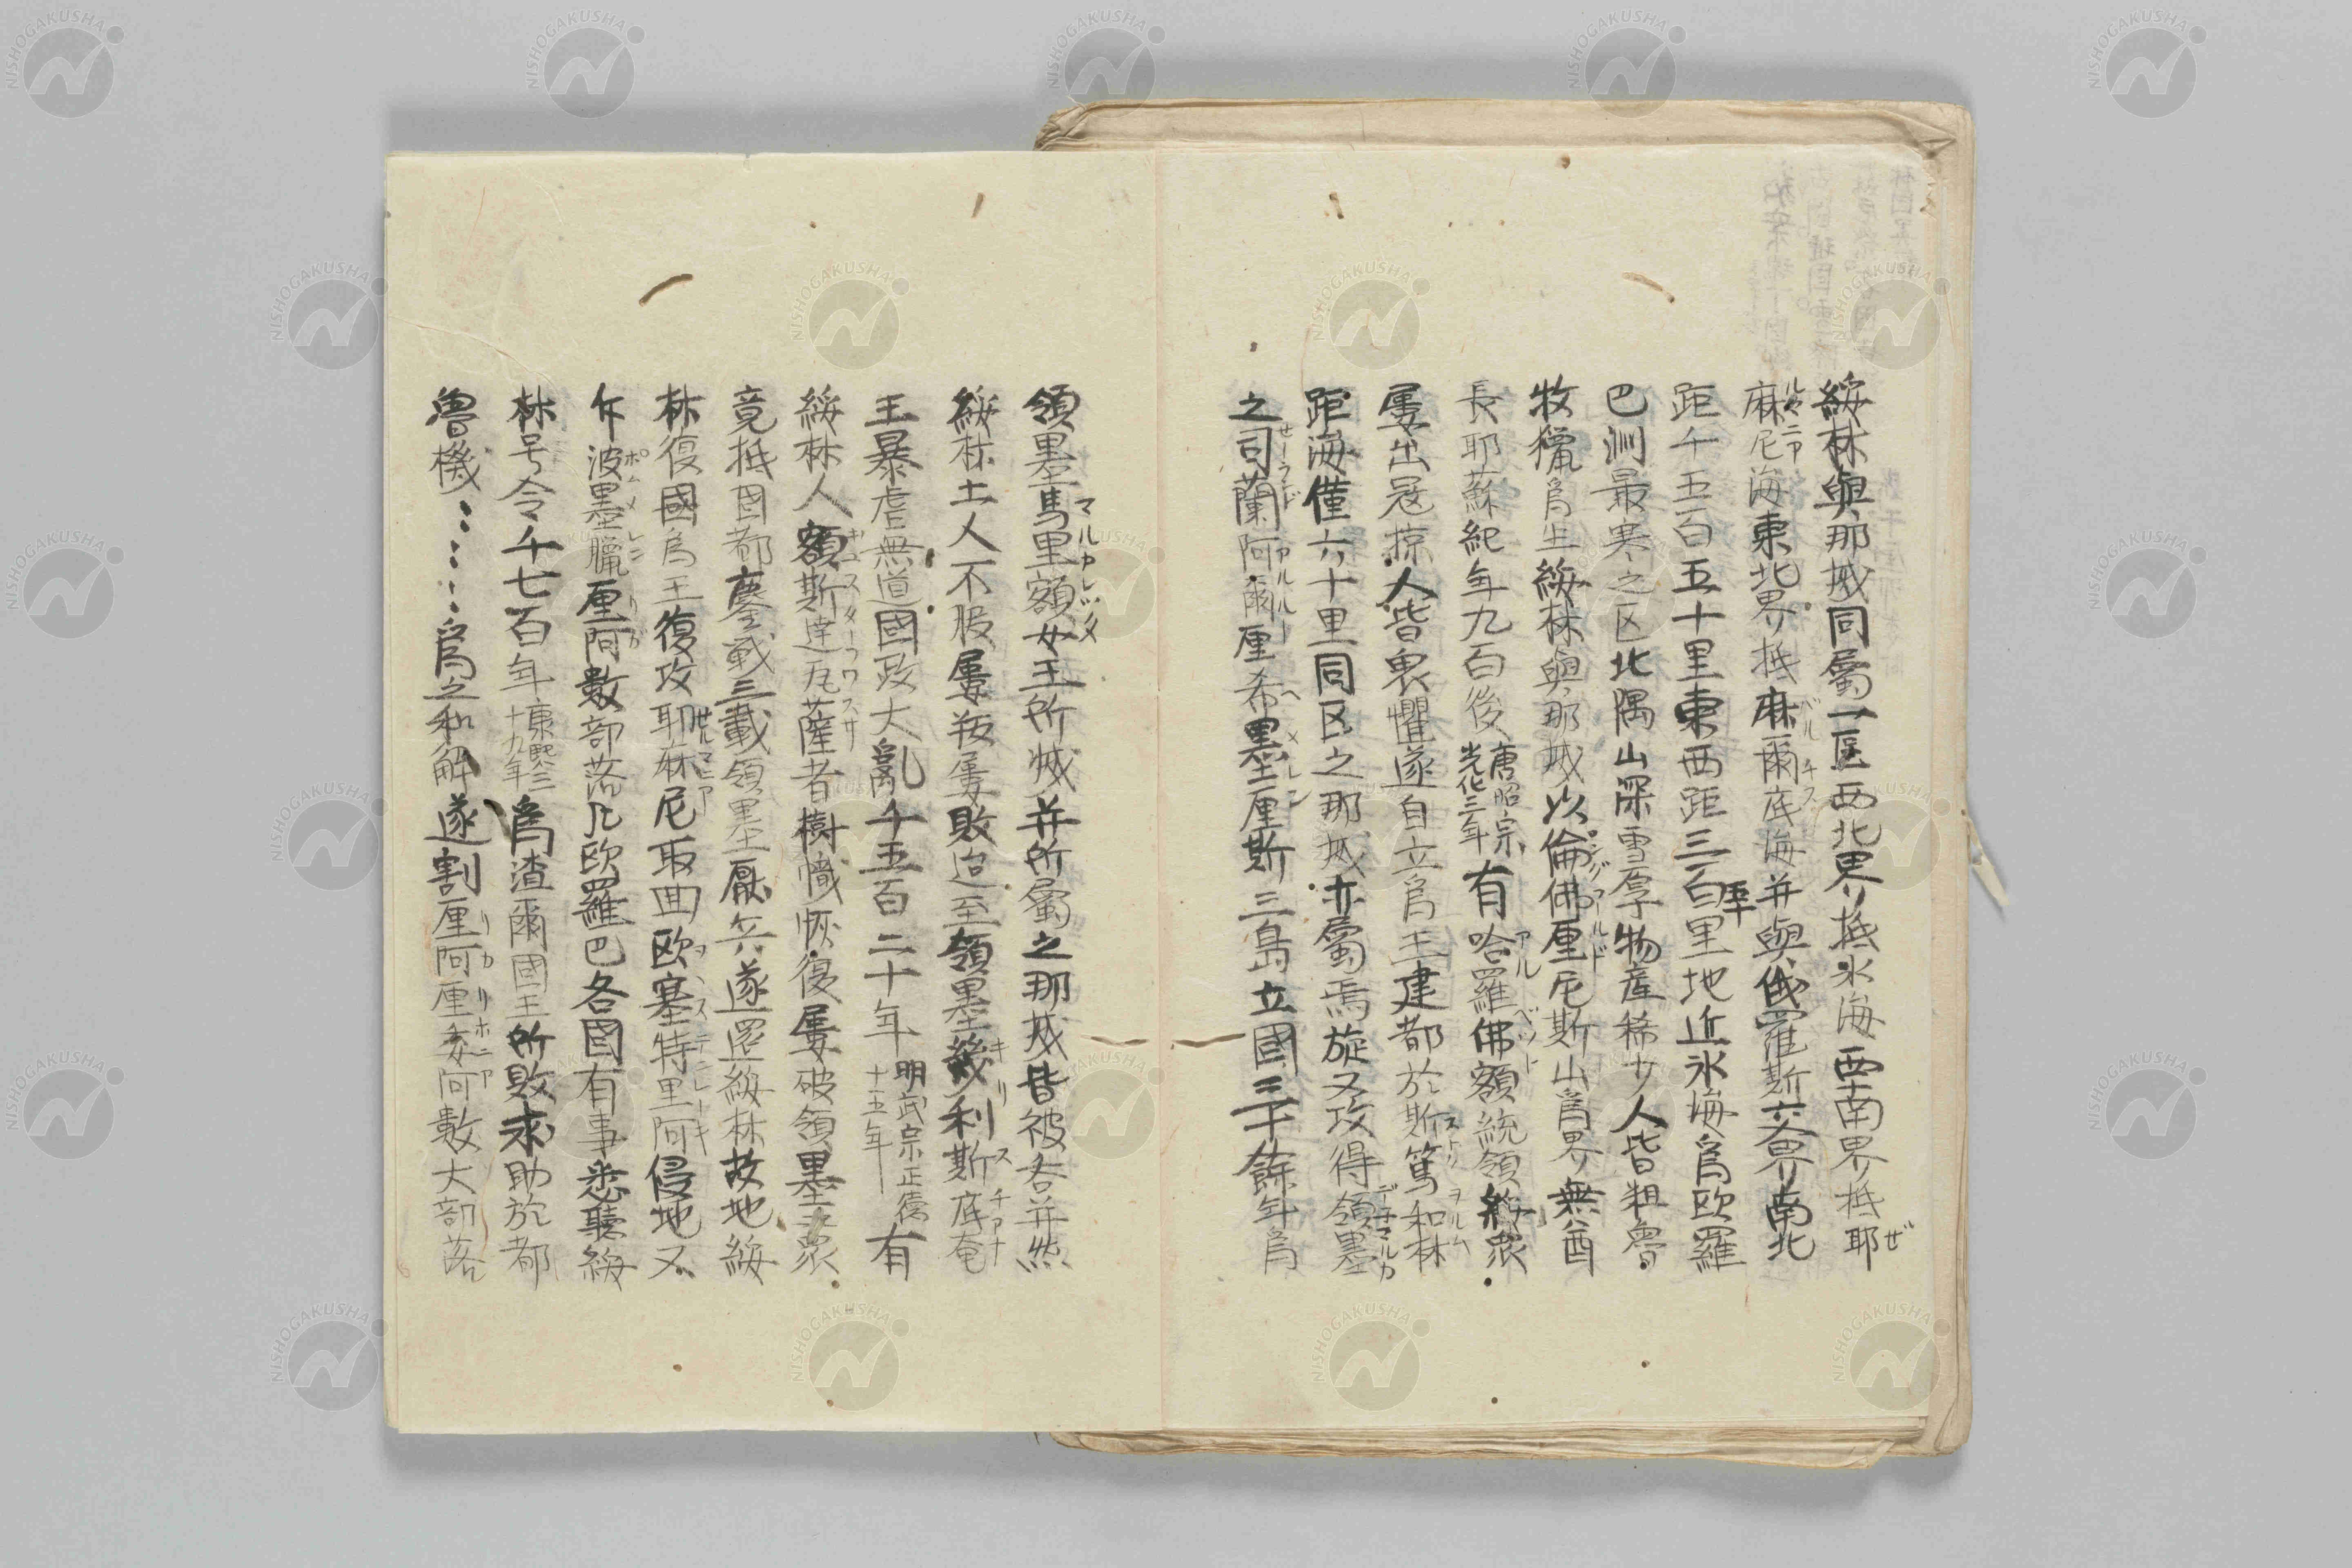 綏林與那威同屬一區西北界抵氷海西南界抵耶
麻尼海東北界抵麻爾底海并與俄羅斯交界南北
距千五百五十里東西距三百五十里地近氷海為欧羅
巴洲最寒之区北隅山深雪厚物産稀少人皆粗魯
牧獵為生綏林與那威以倫佛厘尼斯山為界無酋
長耶蘇紀年九百後唐昭宗光化三年有哈羅佛額統領綏衆
屡出寇掠人皆畏懼遂自立為王建都於斯篤和林
距海僅六十里同区之那威亦屬焉旋又攻得領墨
之司蘭阿爾厘希墨厘斯三島立國三千餘年為
領墨馬里額女王所滅并所屬之那威皆被吞并然
綏林土人不服屡叛屡敗迨至領墨幾利斯底奄
王暴虐無道國政大亂千五百二十年明武宗正德十五年有
綏林人額斯達瓦薩者樹幟恢復屡破領墨衆
竟抵国都鏖戦三載領墨厭兵遂還綏林故地綏
林復國為王復攻耶麻尼取回欧塞特里阿侵地又
乍波墨臘厘阿數部落凡欧羅巴各國有事悉聽綏
林号令千七百年康熙三十九年為渣爾國王所敗求助於都
魯機……為之和解遂割厘阿厘委阿數大部落